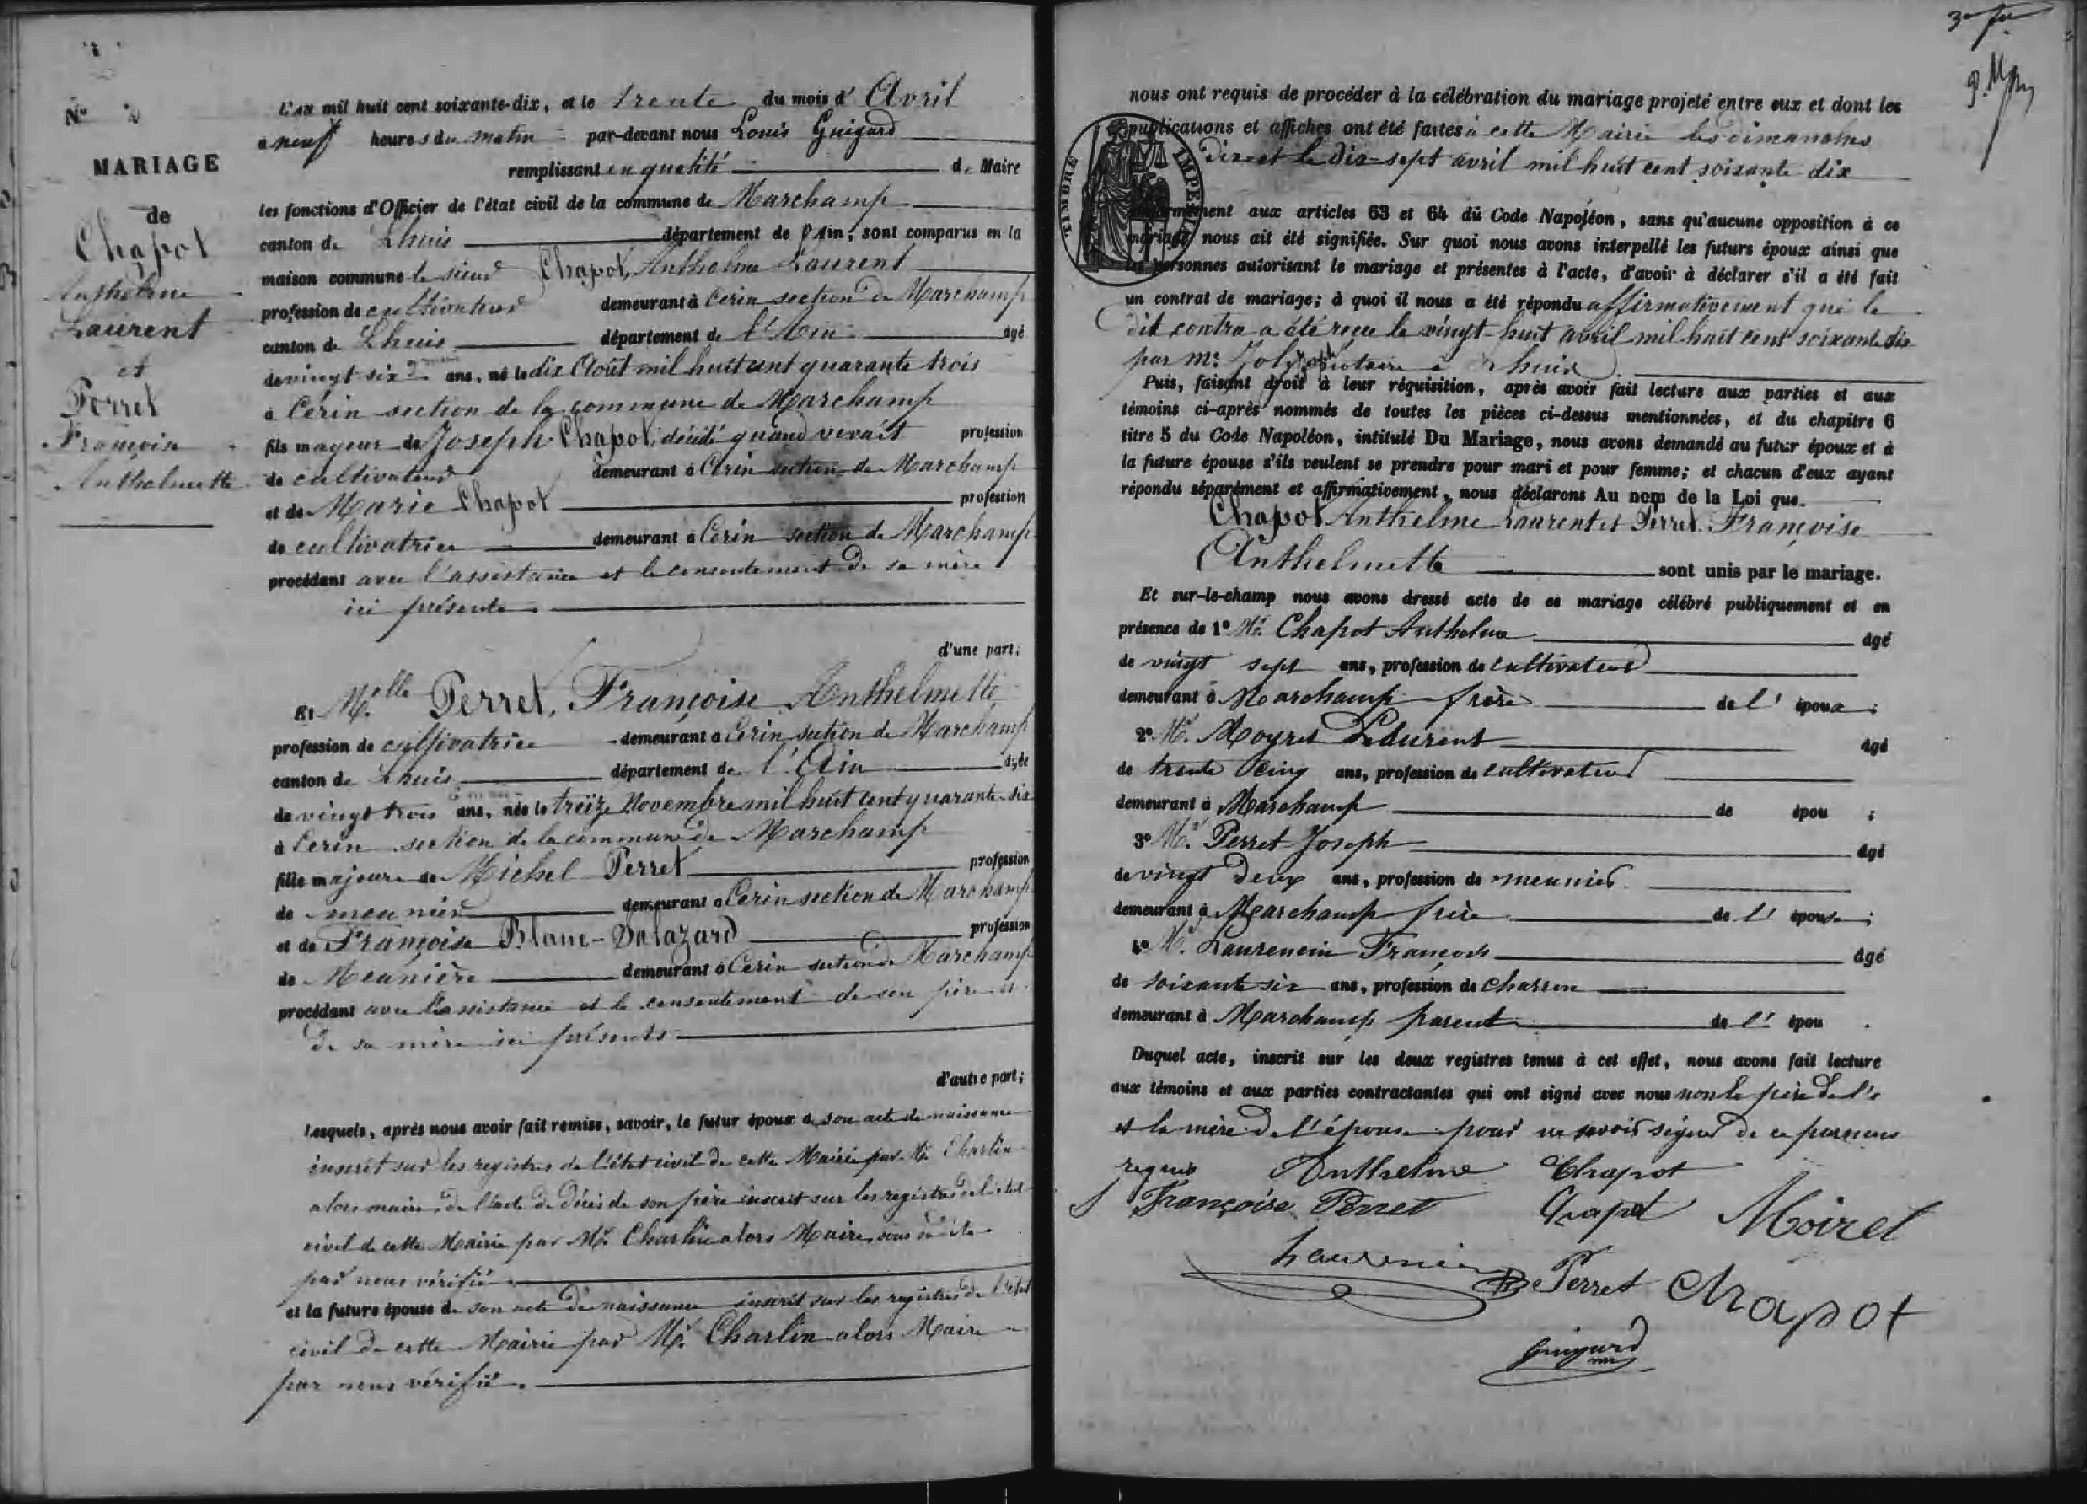 N° 2
MARIAGE
de
Chapot
Anthelme
Laurent
et
Perret
Françoise
Anthelmette
L'an mil huit cent soixante-dix, et le trente du mois d'Avril
à neuf heures du matin par-devant nous Louis Guigard
remplissant en qualité de Maire
les fonctions d'Officier de l'état civil de la commune de Marchamp
canton de Lhuis département de l'Ain, sont comparus en la
maison commune le sieur Chapot, Anthelme Laurent
profession de cultivateur demeurant à Cerin section de Marchamp
canton de Lhuis département de l'Ain âgé
de vingt six ans, né le dix Août mil huit cent quarante trois
à Cerin section de la commune de Marchamp
fils majeur de Joseph Chapot, décédé quand vivait profession
de cultivateur demeurant à Cerin section de Marchamp
et de Marie Chapot profession
de cultivatrice demeurant à Cerin section de Marchamp
procédant avec l'assistance et le consentement de sa mère
ici présente
d'une part;
Et M.elle Perret, Françoise Anthelmette
profession de cultivatrice demeurant à Cerin section de Marchamp
canton de Lhuis département de l'Ain âgée
de vingt trois ans, née le treize Novembre mil huit cent quarante six
à Cerin section de la commune de Marchamp
fille majeure de Michel Perret profession
de meunier demeurant à Cerin section de Marchamp
et de Françoise Blanc-Salazard profession
de Meunière demeurant à Cerin section de Marchamp
procédant avec l'assistance et le consentement de son père et
de sa mère ici présents
d'autre part;
Lesquels, après nous avoir fait remise, savoir, le futur époux de son acte de naissance
inscrit sur les registres de l'état civil de cette Mairie par Mr. Charlin
alors maire, de l'acte de décès de son père inscrit sur les registres de l'état
civil de cette Mairie par Mr. Charlin alors Maire, sous sa date
par nous vérifié
et la future épouse de son acte de naissance inscrit sur les registres de l'état
civil de cette Mairie par Mr. Charlin alors Maire
par nous vérifié.
nous ont requis de procéder à la célébration du mariage projeté entre eux et dont les
publications et affiches ont été faites à cette Mairie les dimanches
dix et le dix-sept avril mil huit cent soixante dix
TIMBRE IMPE
conformément aux articles 63 et 64 du Code Napoléon, sans qu'aucune opposition à ce
mariage nous ait été signifiée. Sur quoi nous avons interpellé les futurs époux ainsi que
les personnes autorisant le mariage et présentes à l'acte, d'avoir à déclarer s'il a été fait
un contrat de mariage; à quoi il nous a été répondu affirmativement que le
dit contra a été reçu le vingt-huit avril mil huit cent soixante dix
par Me. Joly notaire à Lhuis
Puis, faisant droit à leur réquisition, après avoir fait lecture aux parties et aux
témoins ci-après nommés de toutes les pièces ci-dessus mentionnées, et du chapitre 6
titre 5 du Code Napoléon, intitulé Du Mariage, nous avons demandé au futur époux et à
la future épouse s'ils veulent se prendre pour mari et pour femme; et chacun d'eux ayant
répondu séparément et affirmativement, nous déclarons Au nom de la Loi que
Chapot Anthelme Laurent et Perret Françoise
Anthelmette sont unis par le mariage.
Et sur-le-champ nous avons dressé acte de ce mariage célébré publiquement et en
présence de 1° Mr. Chapot Anthelme âgé
de vingt sept ans, profession de cultivateur
demeurant à Marchamp frère de l'époux;
2° Mr. Moyret Laurent âgé
de trente cinq ans, profession de cultivateur
demeurant à Marchamp de épou ;
3° Mr. Perret Joseph âgé
de vingt deux ans, profession de meunier
demeurant à Marchamp frère de l'épouse;
4° Mr. Laurencin François âgé
de soixante six ans, profession de charron
demeurant à Marchamp parent de l'épou .
Duquel acte, inscrit sur les deux registres tenus à cet effet, nous avons fait lecture
aux témoins et aux parties contractantes qui ont signé avec nous non le père de l'é
et la mère de l'épouse pour ne savoir signer de ce par nous
requis Anthelme Chapot
Françoise Perret Chapot Moirel
Laurencin Perret Chapot
Guigard